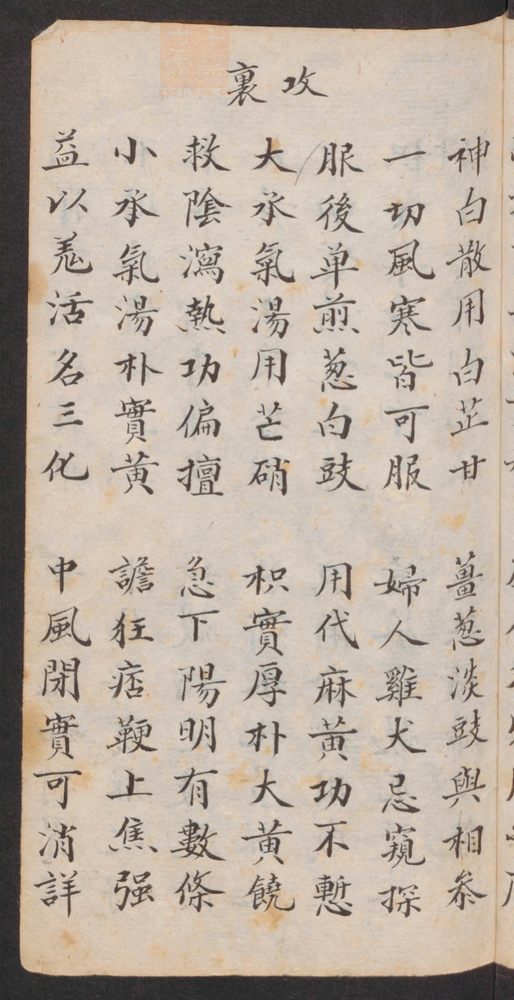 神白散用白芷甘 薑葱淡豉與相參
一切風寒皆可服 婦人雞犬忌窺探
服後单煎葱白豉 用代麻黃功不慙
攻裏
大承氣湯用芒硝 枳實厚朴大黃饒
救陰瀉熱功偏擅 急下陽明有數條
小承氣湯朴實黃 譫狂痞鞕上焦强
益以羗活名三化 中風閉實可消詳